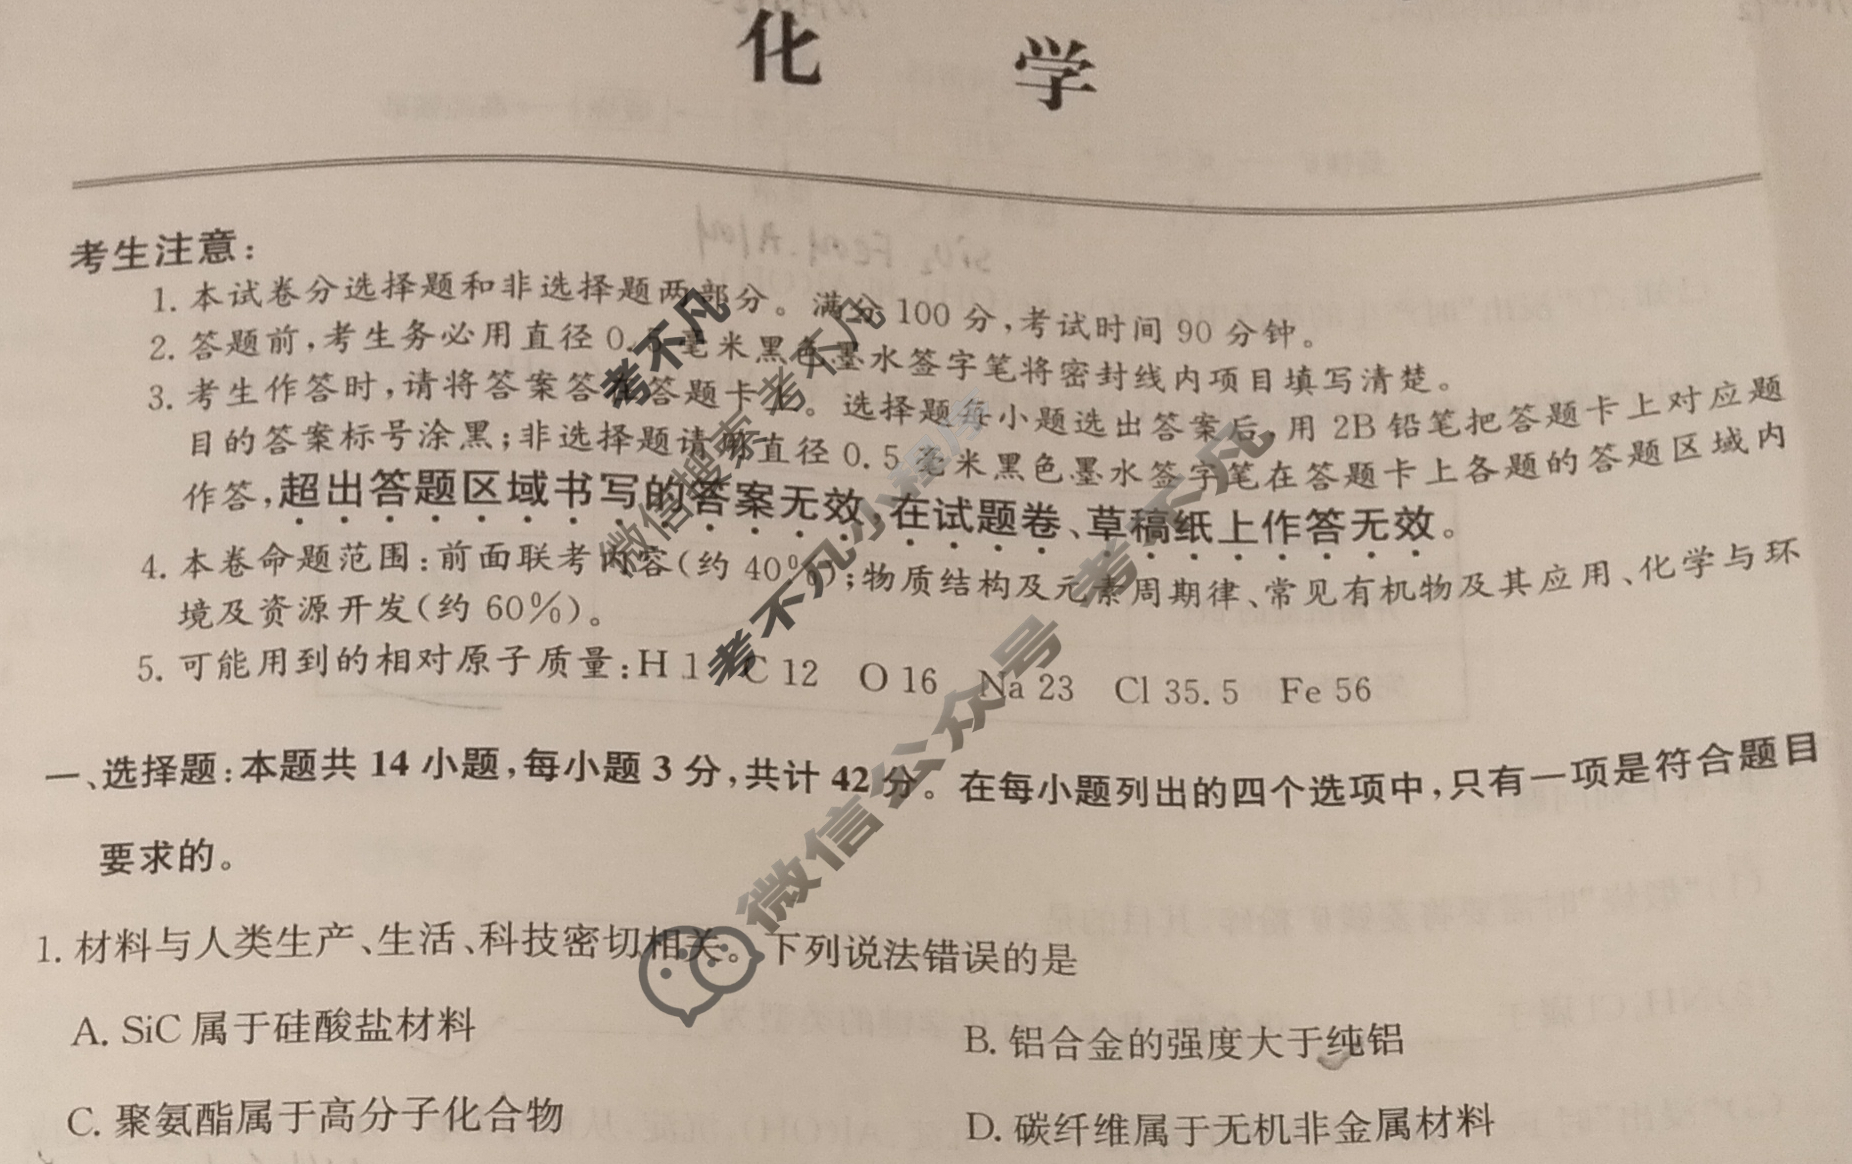 化 学
考生注意:
1. 本试卷分选择题和非选择题两部分。满分 100 分,考试时间 90 分钟。
2. 答题前,考生务必用直径 0.5 毫米黑色墨水签字笔将密封线内项目填写清楚。
3. 考生作答时,请将答案答在答题卡上。选择题每小题选出答案后,用 2B 铅笔把答题卡上对应题
目的答案标号涂黑;非选择题请用直径 0.5 毫米黑色墨水签字笔在答题卡上各题的答题区域内
作答,超出答题区域书写的答案无效,在试题卷、草稿纸上作答无效。
4. 本卷命题范围:前面联考内容(约 40%);物质结构及元素周期律、常见有机物及其应用、化学与环
境及资源开发(约 60%)。
5. 可能用到的相对原子质量:H 1 C 12 O 16 Na 23 Cl 35.5 Fe 56
一、选择题:本题共 14 小题,每小题 3 分,共计 42 分。在每小题列出的四个选项中,只有一项是符合题目
要求的。
1. 材料与人类生产、生活、科技密切相关。下列说法错误的是
A. SiC 属于硅酸盐材料
B. 铝合金的强度大于纯铝
C. 聚氨酯属于高分子化合物
D. 碳纤维属于无机非金属材料
考不凡
微信搜索考不凡
考不凡小程序
微信公众号 考不凡